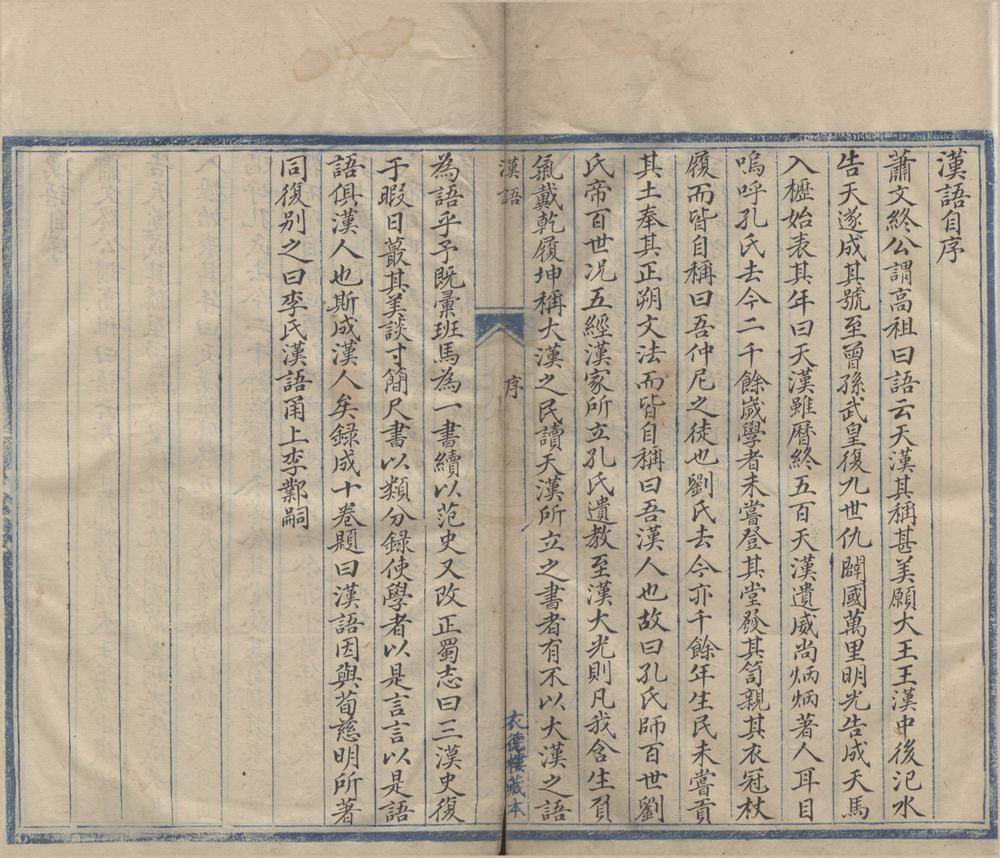 漢語自序
蕭文終公謂高祖曰語云天漢其稱甚美願大王王漢中後汜水
告天遂成其號至曾孫武皇復九世仇闢國萬里明光告成天馬
入櫪始表其年曰天漢雖曆終五百天漢遺威尚炳炳著人耳目
嗚呼孔氏去今二千餘歲學者未嘗登其堂發其笥親其衣冠杖
履而皆自稱曰吾仲尼之徒也劉氏去今亦千餘年生民未嘗貢
其土奉其正朔文法而皆自稱曰吾漢人也故曰孔氏師百世劉
氏帝百世况五經漢家所立孔氏遺教至漢大光則凡我含生負
氣戴乾履坤稱大漢之民讀天漢所立之書者有不以大漢之語
漢語 序 衣德樓藏本
為語乎予既彙班馬為一書續以范史又改正蜀志曰三漢史復
于暇日蕞其美談寸簡尺書以類分錄使學者以是言言以是語
語俱漢人也斯成漢人矣録成十卷題曰漢語因與荀慈明所著
同復別之曰李氏漢語甬上李鄴嗣